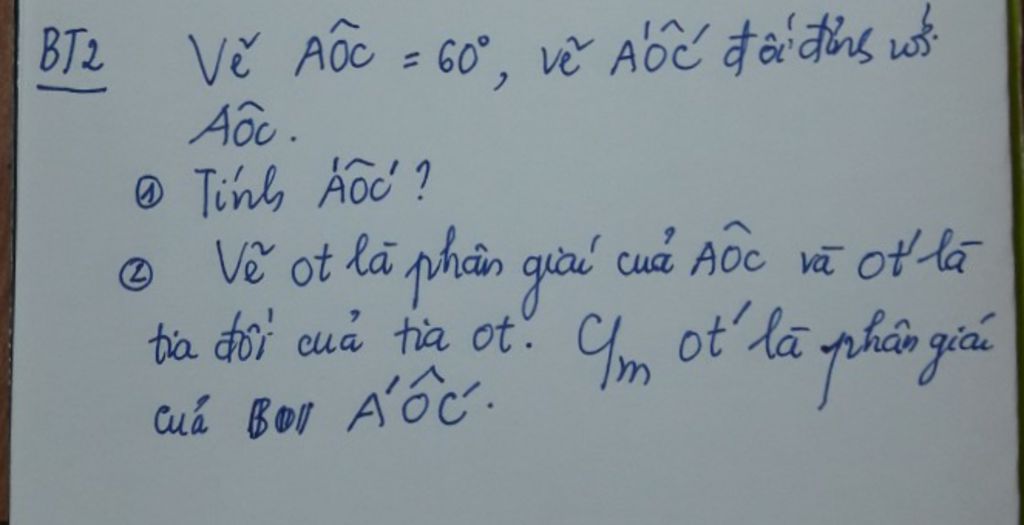 BT2 Vẽ AÔC = 60°, vẽ A'ÔC' đối đỉnh với
AÔC.
① Tính A'ÔC' ?
② Vẽ ot là phân giác của AÔC và ot' là
tia đối của tia ot. C/m ot' là phân giác
của A'ÔC'.